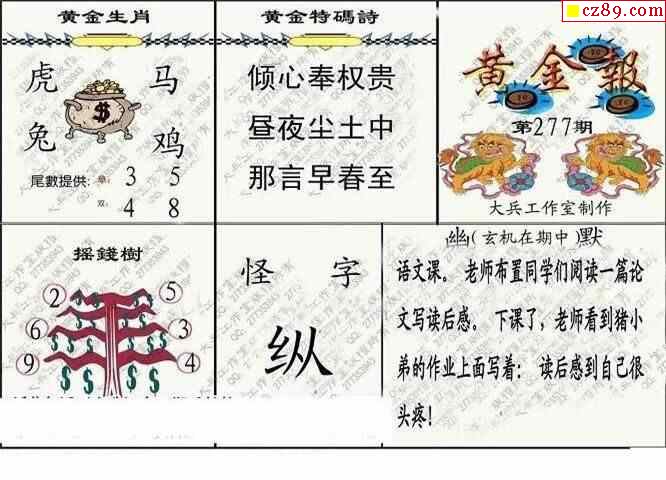 cz89.com
黄金生肖
虎 马
兔 鸡
尾數提供: 单: 3 5
双: 4 8
黄金特碼詩
倾心奉权贵
昼夜尘土中
那言早春至
黄金報
第277期
大兵工作室制作
摇錢樹
2 5
6 3
9 4
怪字
纵
幽(玄机在期中)默
语文课。 老师布置同学们阅读一篇论
文写读后感。 下课了，老师看到猪小
弟的作业上面写着： 读后感到自己很
头疼!